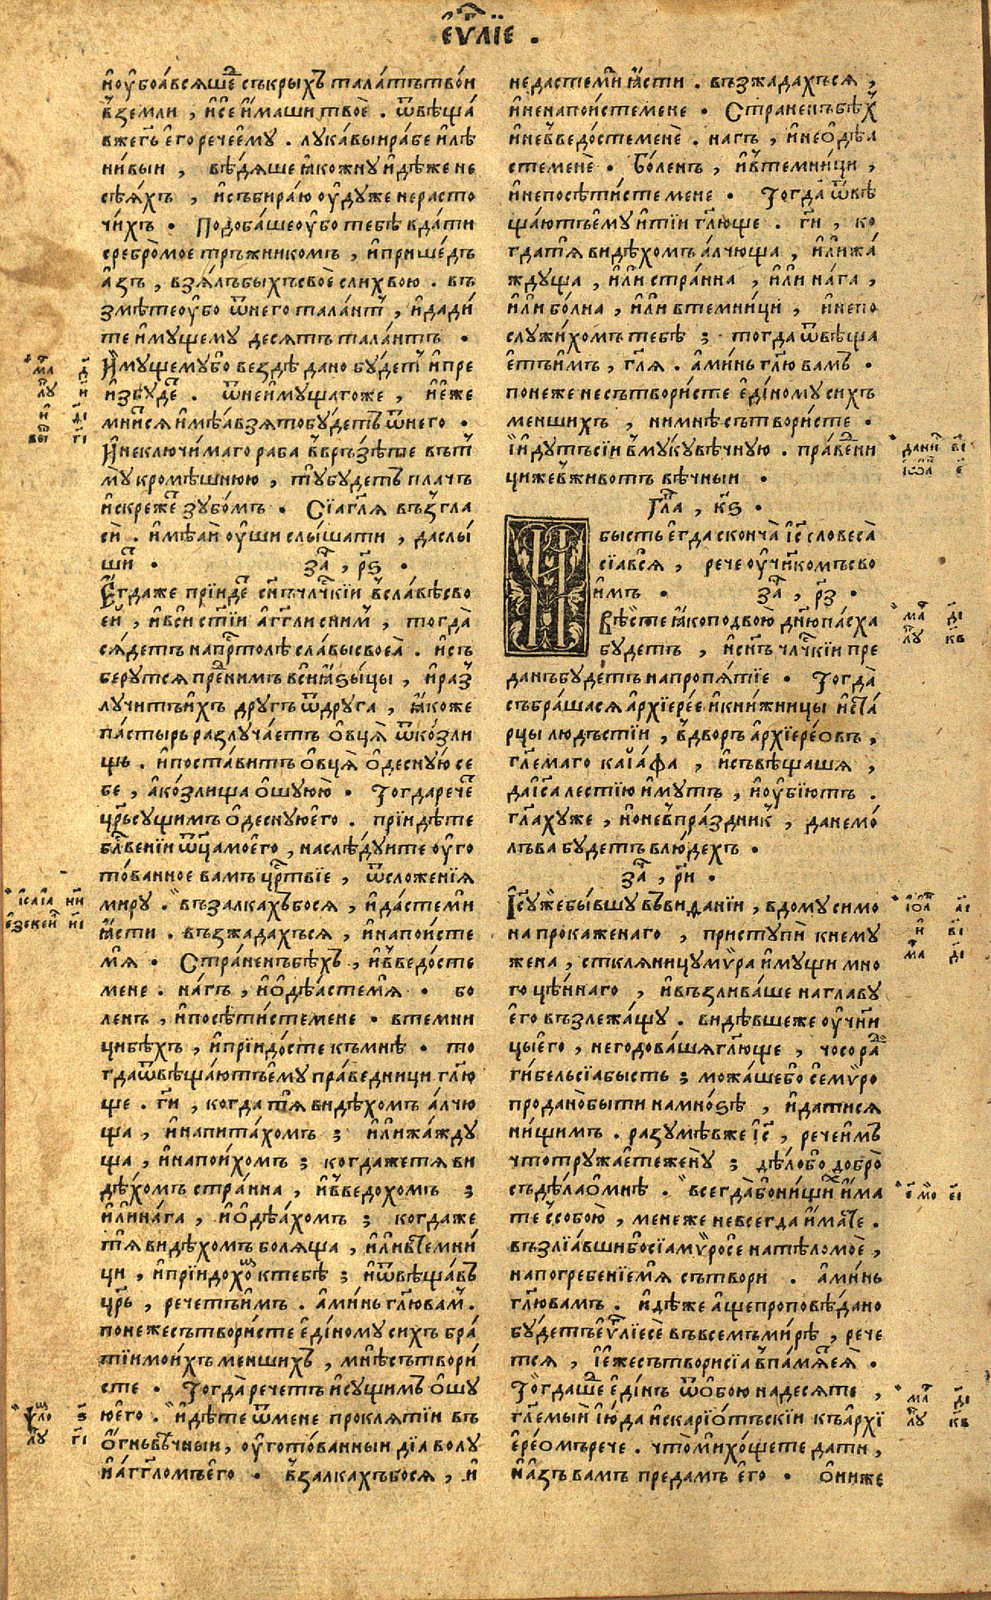 єѵⷢ҇лїе .
и҆ оу҆боа́всѧше́дъ съкрыхъ тала́нтъ тво́и
в̾земли , и҆ се и҆́маши твоѐ . ѿвѣща́
в же гⷭ҇ь е҆го рече е҆му . лука́выи ра́бе и҆ лѣ
ни́выи , вѣ́дѧше ꙗ҆́ко жну и҆дѣ́же не
сѣ́ꙗхъ , и҆ събира́ю оу҆ду́же не расто
чи́хъ . Подоба́ше оу҆́бо тебѣ̀ вда́ти
сребро̀ мое тръжнико́мъ , и҆ прише́дъ
а҆́зъ , взѧ́лъ бы́хъ своѐ с ли́хвою . въ
змѣ́те оу҆бо ѿ него тала́нтъ , и҆ дади́
те и҆му́щему де́сѧть тала́нтъ .
И҆му́щему бо вездѐ дано бу́детъ и҆ пре
и҆збу́де . ѿ неи҆му́щаго же , и҆ е҆́же
мни́тсѧ и҆мѣ́ѧ взѧто бу́детъ ѿ него .
И҆ неключи́маго раба̀ в̾ве́рзѣте въ т̾
му кромѣ́шнюю , ту бу́детъ пла́чь
и҆ скре́жеⷮ зубо́мъ . Сїа гл҃ѧ възгла
сѝ . и҆мѣ́ай оу҆́ши слы́шати , да слы́
шиⷮ . за , рѕ .
Е҆гда́же прїи́деⷮ сн҃ъ чл҃чкїи в̾ сла́вѣ сво
е́й , и҆ вси ст҃і́и а҆́гг҃ли с ни́мъ , тогда̀
сѧ́детъ на прⷭ҇то́лѣ сла́вы своеѧ̀ . и҆ съ
беру́тсѧ прⷣе ни́мъ вси ꙗ҆ѕы́цы , и҆ раз̾
лучи́тъ и҆́хъ дру́гъ ѿ дру́га , ꙗ҆́коже
па́стырь разлуча́етъ о҆вцѧ̀ ѿ ко́зли
щь . и҆ поста́витъ о҆́вцѧ о҆десну́ю се
бе , а ко́злища о҆шу́юю . Тогда рече́ⷮ
цр҃ь су́щимъ о҆десну́ю е҆го . прїидѣ́те
блⷭ҇ве́нїи ѿц҃а моего , наслѣ́дуите оу҆го
то́ванное ва́мъ црⷭ҇твїе , ѿ сложе́нїѧ
ми́ру . възалка́хъ бо сѧ , и҆ да́сте ми
ꙗ҆́сти . възжада́хъсѧ , и҆ напои́сте
мѧ̀ . Стра́ненъ бѣ́хъ , и҆ в̾ведо́сте
мене . на́гъ , и҆ о҆дѣ́асте мѧ̀ . бо
ленъ , и҆ посѣти́сте мене . в темни
ци бѣ́хъ , и҆ прїидо́сте къ мнѣ̀ . то
гда ѿвѣща́ютъ е҆му пра́ведници гл҃ю
ще . гⷭ҇и , когда тѧ̀ ви́дѣхомъ а҆лчю
ща , и҆ напита́хомъ ; и҆ли́ жа́жду
ща , и҆ напои́хомъ ; когда́же тѧ ви
дѣ́хомъ стра́нна , и҆ в̾ведохомъ ;
и҆ли́ на́га , и҆ о҆дѣ́ахомъ ; когда́же
тѧ̀ ви́дѣхомъ болѧ́ща , и҆ли́ в темни́
ци , и҆ прїидохоⷨ к тебѣ̀ ; и҆ ѿвѣща́въ
цр҃ь , рече́тъ и҆́мъ . а҆ми́нь гл҃ю ва́м̾ .
поне́же сътвори́сте е҆ди́ному си́хъ бра́
тїи мои́хъ ме́ншихъ , мнѣ̀ сътвори́
сте . Тогда̀ рече́тъ и҆ су́щимъ о҆шу
юю е҆го . и҆дѣ́те ѿ мене проклѧ́тїи въ
о҆́гнь вѣ́чныи , оу҆гото́ванныи дїа́волу
и҆ а҆́гг҃ломъ е҆го . в̾залка́хъ бо сѧ , и҆
не да́сте ми ꙗ҆́сти . възжада́хъсѧ ,
и҆ не напои́сте мене . Стра́ненъ бѣ́х̾
и҆ не в̾ведо́сте менѐ . на́гъ , и҆ не о҆дѣ́а
сте менѐ . Бо́ленъ , и҆ в̾ темни́ци ,
и҆ не посѣти́сте мене . Тогда̀ ѿвѣ
ща́ютъ е҆му и҆ ті́и гл҃юще . гⷭ҇и , ко
гда тѧ̀ ви́дѣхомъ а҆́лчюща , и҆ли́ жа́
ждуща , и҆ли́ стра́нна , и҆ли́ на́га ,
и҆ли́ бо́лна , и҆ли́ в темни́ци , и҆ не по
служи́хомъ тебѣ̀ ; тогда ѿвѣща
етъ и҆́мъ , гл҃ѧ . а҆ми́нь гл҃ю ва́мъ .
поне́же не сътвори́сте е҆ди́ному си́хъ
ме́ншихъ , ни мнѣ̀ сътвори́сте .
и҆ и҆ду́тъ сїи в̾ му́ку вѣ́чную . пра́веⷣни
ци же в̾ живо́тъ вѣ́чныи .
Гла , кѕ .
И бы́сть е҆гда сконча̀ і҆с҃ словеса̀
сїа всѧ̀ , рече оу҆чн҃ко́мъ сво
и҆́мъ . за , рз .
Вѣ́сте ꙗ҆́ко по двою̀ дн҃ю па́сха
бу́детъ , и҆ сн҃ъ чл҃чкїи пре
да́нъ бу́детъ на пропѧ́тїе . Тогда̀
събра́шасѧ а҆рхїере́е и҆ кни́жницы и҆ ста́
рцы лю́дьстїи , в̾ дво́ръ а҆рхїерео́въ ,
гл҃емаго каїа́фа , и҆ съвѣща́шѧ ,
да і҆с҃а ле́стїю и҆́мутъ , и҆ оу҆бїю́тъ .
гл҃аху же , но не в̾ пра́здник̾ , да не мо́
лъва бу́детъ в лю́дехъ .
за , ри .
І҆с҃у же бы́вшу въ вида́нїи , в дому си́мо
на прокаже́наго , приступѝ к нему
жена , сткла́ницу мѵ́ра и҆му́щи мно
го цѣ́ннаго , и҆ възлива́ше на главу
е҆го възлежа́щу . ви́дѣвше же оу҆чн҃и
цы е҆го , негодова́шѧ гл҃юще , чосо ра́дⷣ
ги́бель сїа бы́сть ; можа́ше бо се мѵ́ро
про́дано бы́ти на мно́ѕѣ , и҆ да́тисѧ
ни́щимъ . разумѣ́в же і҆с҃ , рече и҆́мъ
что тружа́ете жену̀ ; дѣ́ло бо добро̀
съдѣ́ла о҆ мнѣ̀ . всегда̀ бо ни́щихъ и҆́ма
те с̾ собо́ю , мене́же не всегда и҆́мате .
възлїа́вши бо сїа мѵ́ро се на тѣ́ло моѐ ,
на погребе́нїе мѧ̀ сътвори́ . а҆ми́нь
гл҃ю ва́мъ . и҆дѣ́же а҆́ще проповѣ́дано
бу́детъ е҆ѵⷢ҇лїе сѐ въ все́мъ ми́рѣ , рече́
тсѧ , и҆ е҆́же сътвори сїа в̾ па́мѧть е҆ѧ̀ .
Тогда ше́дъ е҆ди́нъ ѿ обою на́десѧте ,
гл҃емый і҆ю́да и҆скарїо́тьскїи къ а҆рхї
ерео́мъ рече . что̀ ми хо́щете да́ти ,
и҆ а҆́зъ ва́мъ преда́мъ е҆го . о҆ни́ же